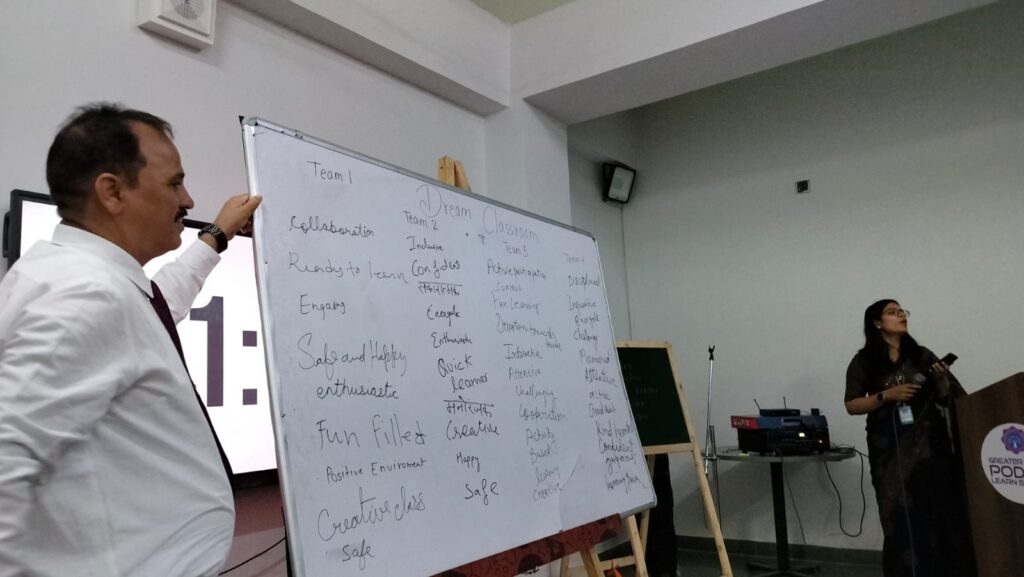 Dream Classroom
Team 1
Collaboration
Ready to learn
Engaging
Safe and Happy
enthusiastic
Fun Filled
Positive Enviroment
Creative class
safe
Team 2
Inclusive
Confident
सकारात्मक
Energetic
Enthusiastic
Quick
learner
मनोरंजक
Creative
Happy
Safe
Team 3
Active participation
curious
Fun learning
Interactive
Attentive
Challenging
Cooperation
Activity
Based
learning
Creative
Team 4
Disciplined
Inquisitive
challenging
Mannered
Attentive
active
Confident
1:
GREATER
POD
LEARN S